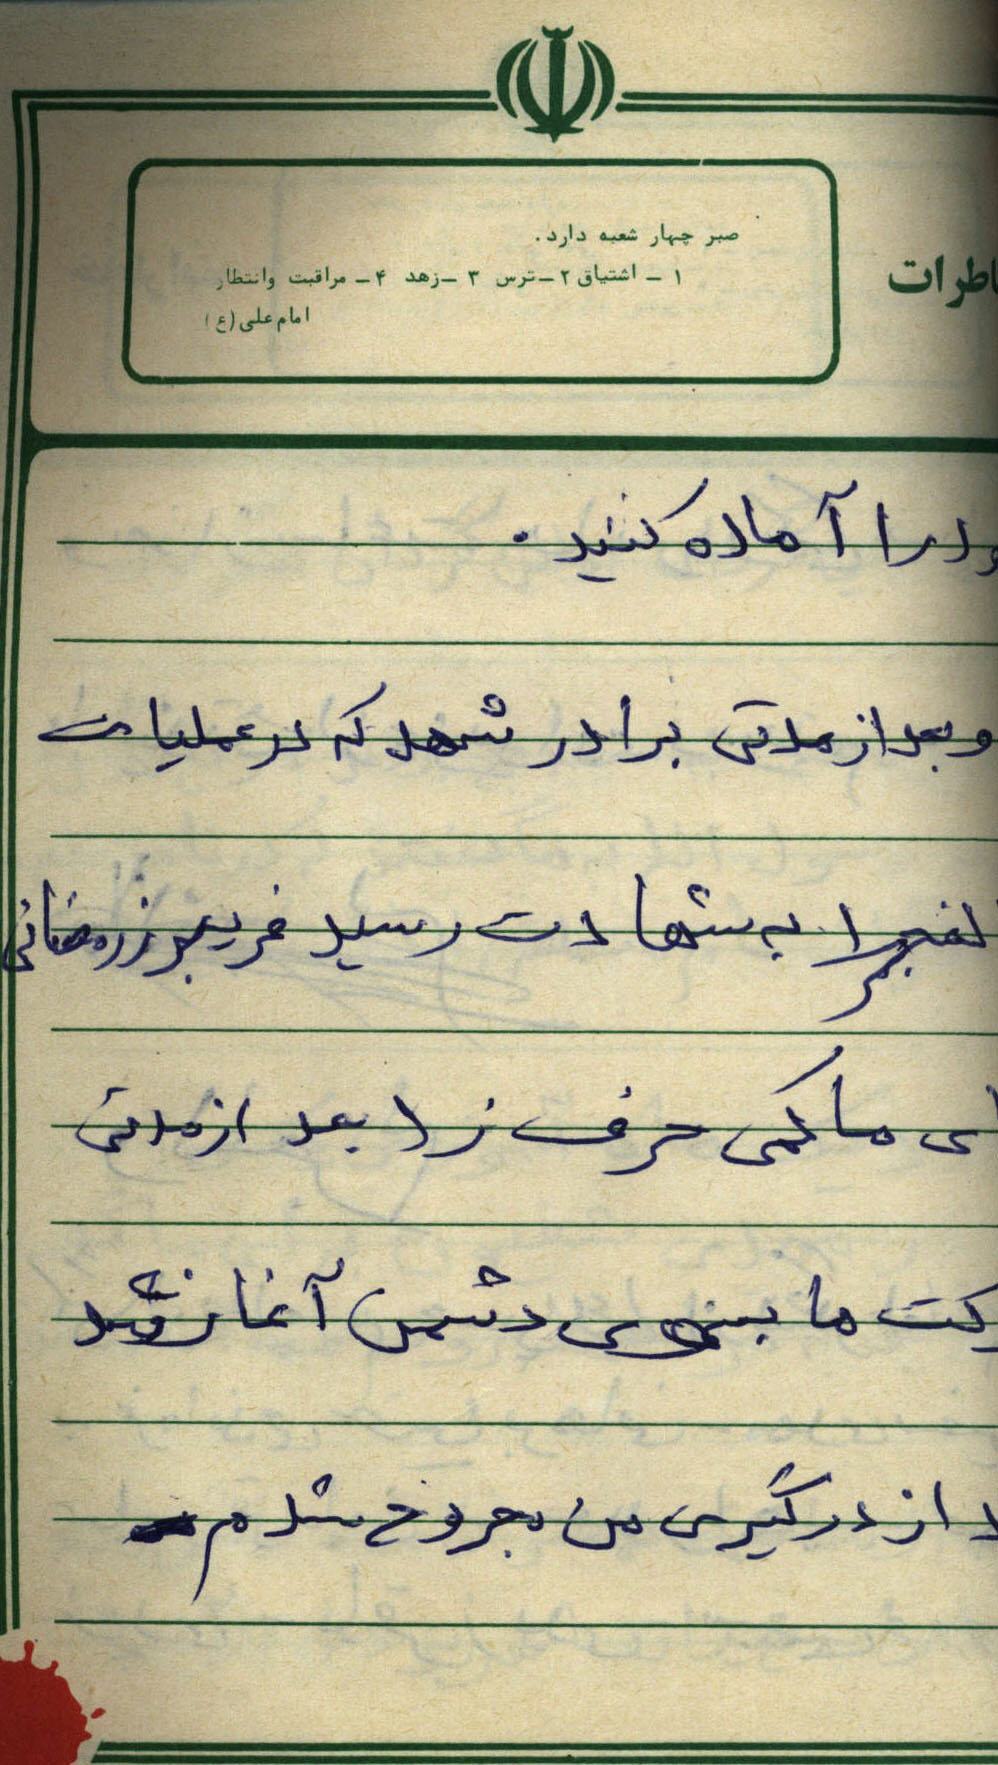 صبر چهار شعبه دارد.
۱ - اشتیاق ۲ - ترس ۳ - زهد ۴ - مراقبت وانتظار
امام علی (ع)
اطرات
ود را آماده کنید.
و بعد از مدتی برادر شهد که در عملیات
لفجر ۱ به شهادت رسید فریبرز رمضانی
ی ما کمی حرف زد بعد از مدتی
رکت ما بسوی دشمن آغاز شد
د از درگیری من مجروح شدم